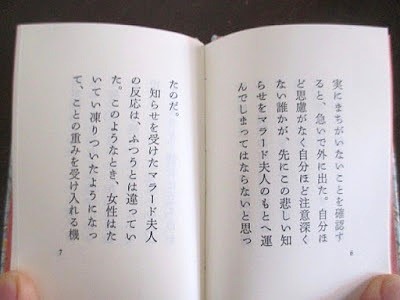 実にまちがいないことを確認す
ると、急いで外に出た。自分ほ
ど思慮がなく自分ほど注意深く
ない誰かが、先にこの悲しい知
らせをマラード夫人のもとへ運
んでしまってはならないと思っ
6
たのだ。
知らせを受けたマラード夫人
の反応は、ふつうとは違ってい
た。このようなとき、女性はた
いてい凍りついたようになっ
て、ことの重みを受け入れる機
7